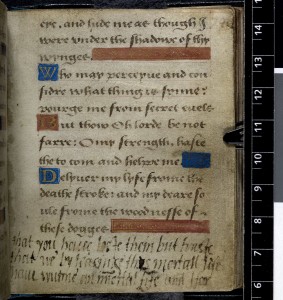 eye, and hide me as though I
were under the shadowe of thy
wynges.
Who may perceyve and con
sidre what thing is synne?
pourge me from secret evels
But thow Oh lorde be not
farre: O my strength, haste
the to com and helpe me
Delyver my lyfe frome the
deathe stroke: and my deare so
ule frome the woodnesse of
these dogges
that you have loste them but truste
that we by leasing
have wunne
14
13
12
11
10
9
8
7
6